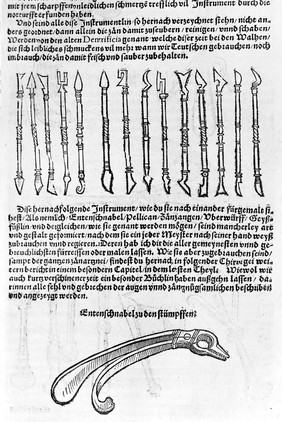 mit jrem scharpffen onleidlichen schmergē treffe lich vil Instrument durch die
notturfft erfunden haben.
Und seind alle dise Instrumentlin so hernach verzeychnet stehn / nicht an-
ders geordnet / dann allein die zän damit zusaubern / reinigen / vnnd schaben /
Werden von den alten Dentifricia genant welche diser zeit bei den Walhen /
die sich leibliches schmuckens vil mehr wann wir Teutschen gebrauchen / noch
im brauch / die zän damit frisch vnd sauber zubehalten.
Dise hernachfolgende Instrument / wie du sie nach einander fürgemalt si-
hest / Als nemlich / Entenschnabel / Pellican / Zänzangen / Vberwürff / Geyß-
füßlin vnd dergleichen / wie sie genant werden mögen / seind mancherley art
vnd gestalt geformiert / nach dem sie ein jeder Meyster nach seiner hand weyß
zubrauchen vnnd regieren. Deren hab ich dir die aller gemeynesten vnnd ge-
breuchlichsten fürreissen oder malen lassen. Wie sie aber zugebrauchen seind /
sampt der gantzen zänartznei / findstu hernach in folgender Chirurgei wei-
tern bericht in einem besondern Capitel / in dem lesten Theyl. Wiewol wir
auch kurtzverschinener zeit ein besonder Büchlin haben außgehn lassen / da-
rinnen alle fehl vnd gebrechen der augen vnnd zän gnügsamlichen beschriben
vnd angezeygt werden.
Entenschnabel zu den stümpffen.